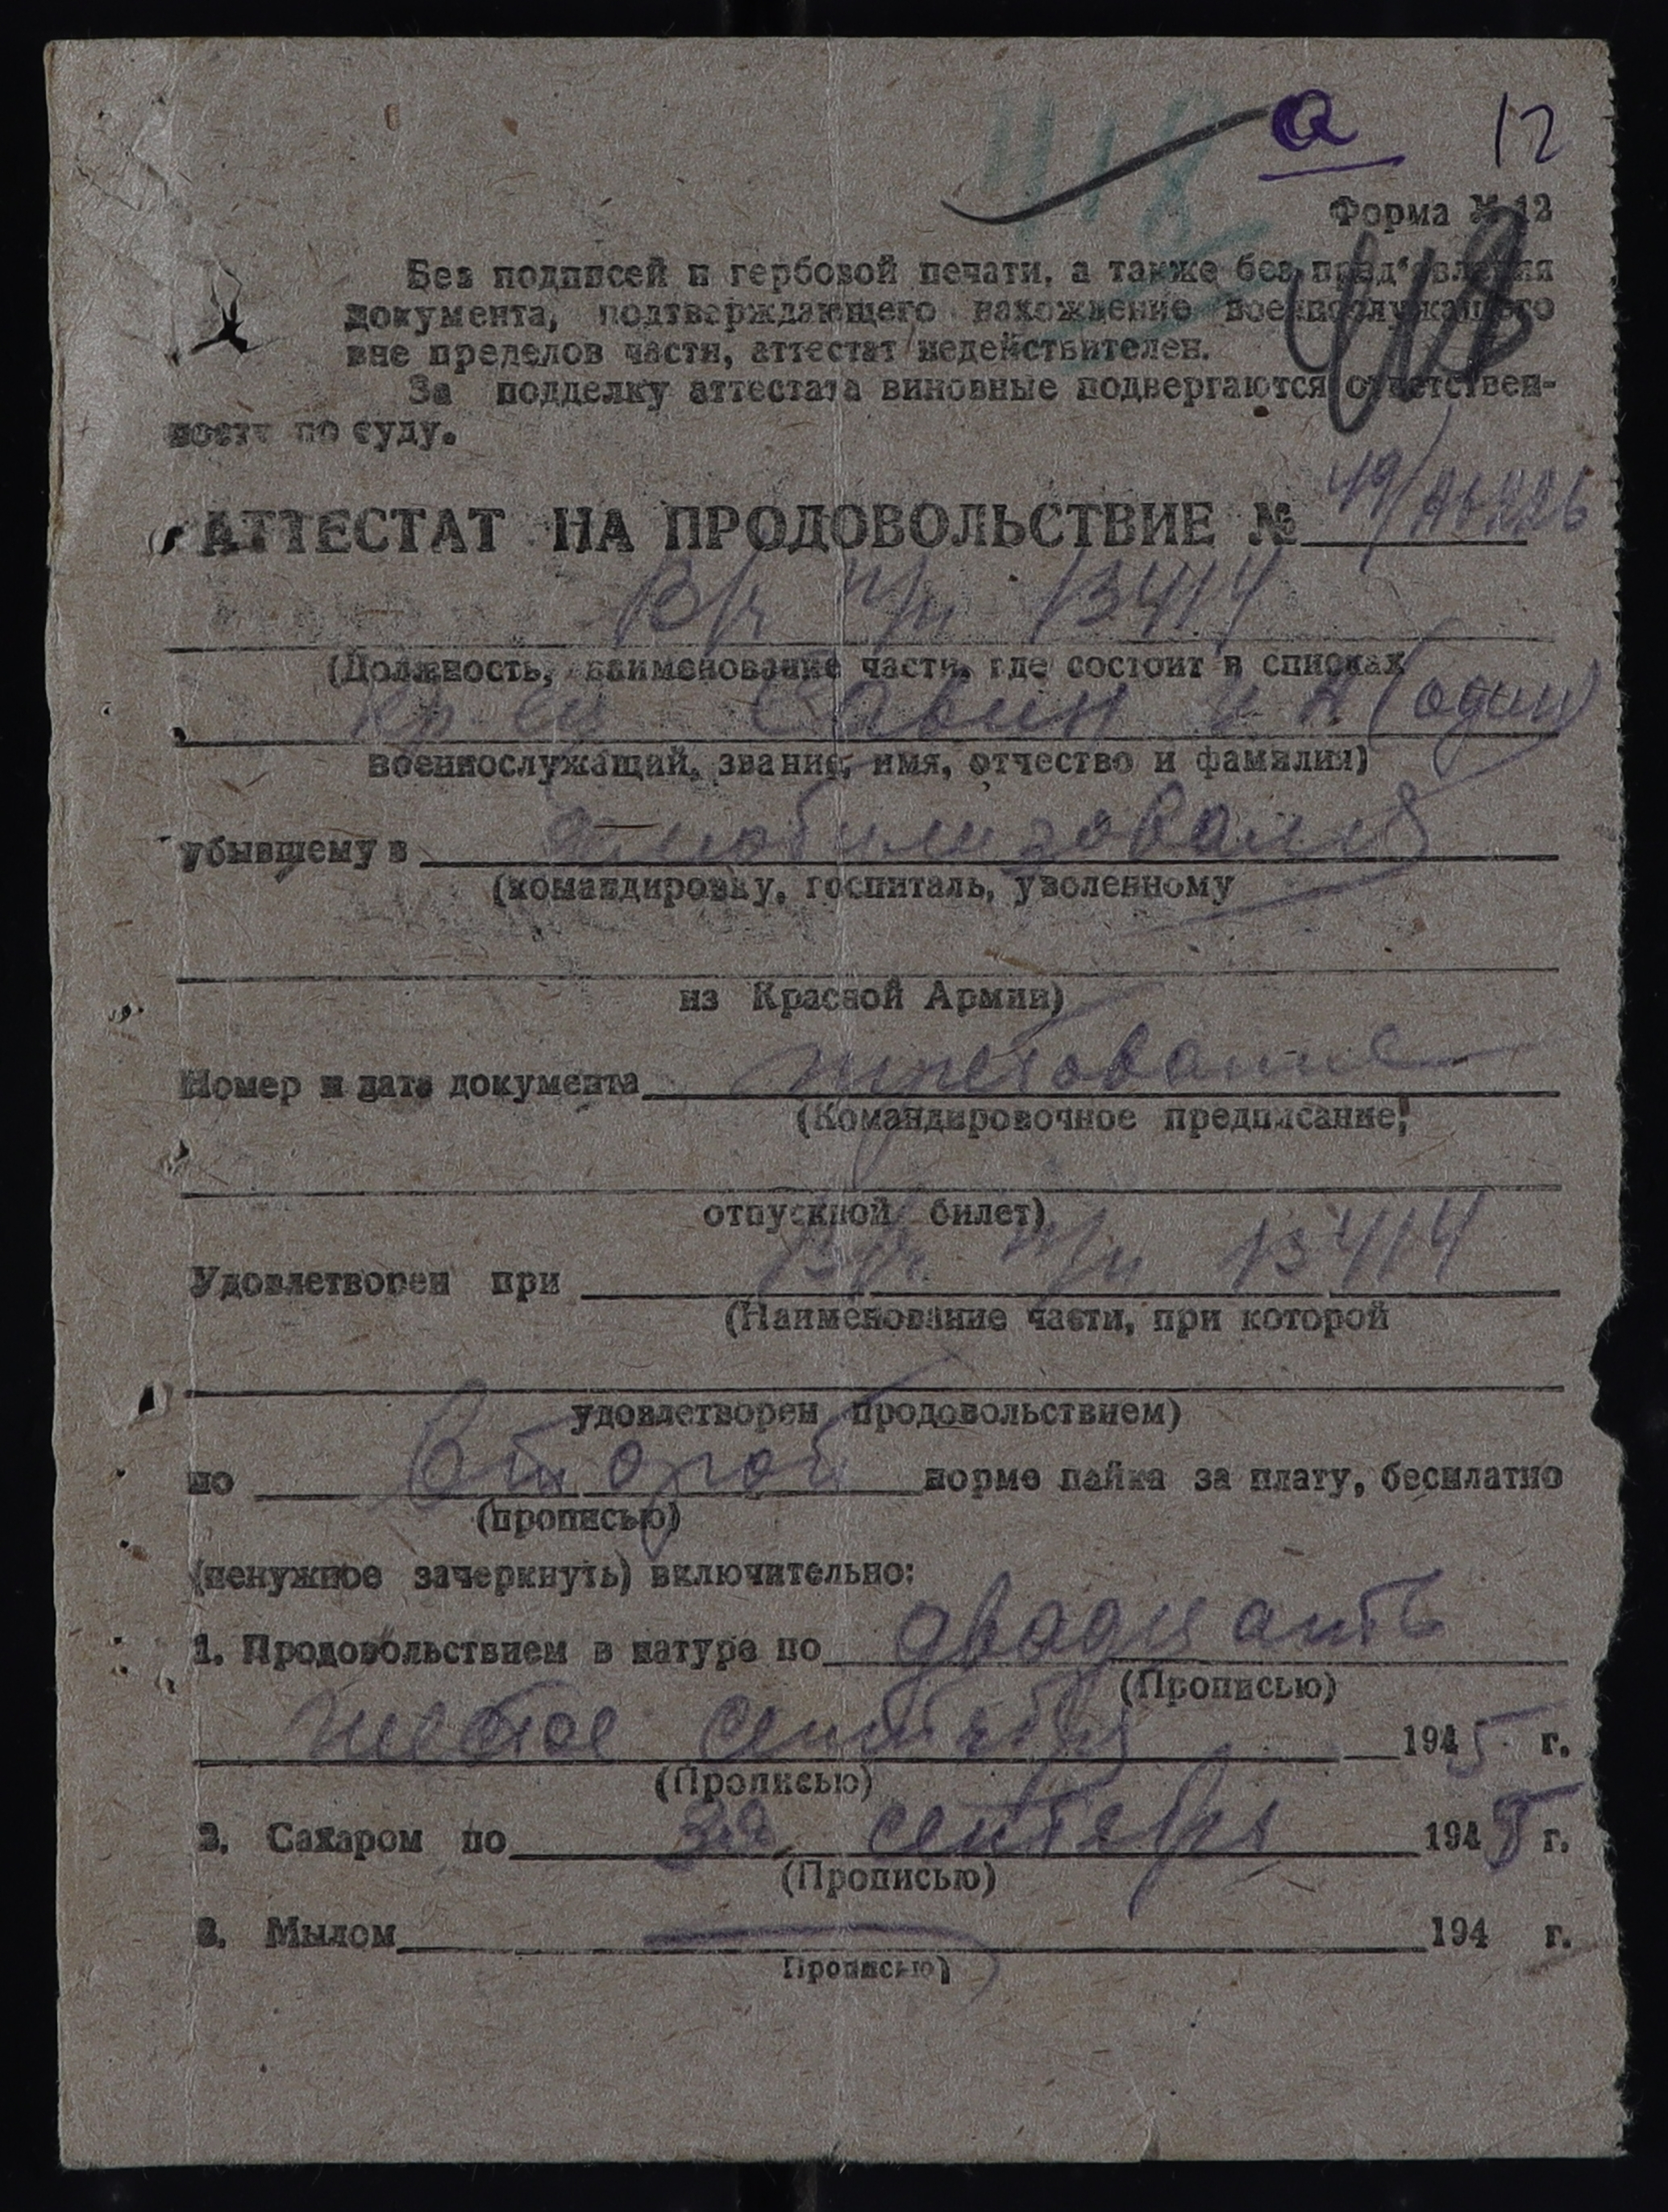 418 а 12
Форма № 12
418
Без подписей и гербовой печати, а также без пред'явления
документа, подтверждающего нахождение военнослужащего
вне пределов части, аттестат недействителен.
За подделку аттестата виновные подвергаются ответствен-
ности по суду.
АТТЕСТАТ НА ПРОДОВОЛЬСТВИЕ № 49/
В/ч п/п 13414
(Должность, наименование части, где состоит в списках
кр-ец Савин И А (один)
военнослужащий, звание, имя, отчество и фамилия)
убывшему в
(командировку, госпиталь, уволенному
из Красной Армии)
Номер и дата документа требование
(Командировочное предписание,
отпускной билет)
Удовлетворен при В/ч п/п 13414
(Наименование части, при которой
удовлетворен продовольствием)
по второй норме пайка за плату, бесплатно
(прописью)
(ненужное зачеркнуть) включительно:
1. Продовольствием в натуре по двадцать
(Прописью)
шестое сентября 1945 г.
(Прописью)
2. Сахаром по сентября 1945 г.
(Прописью)
3. Мылом 194 г.
Прописью)